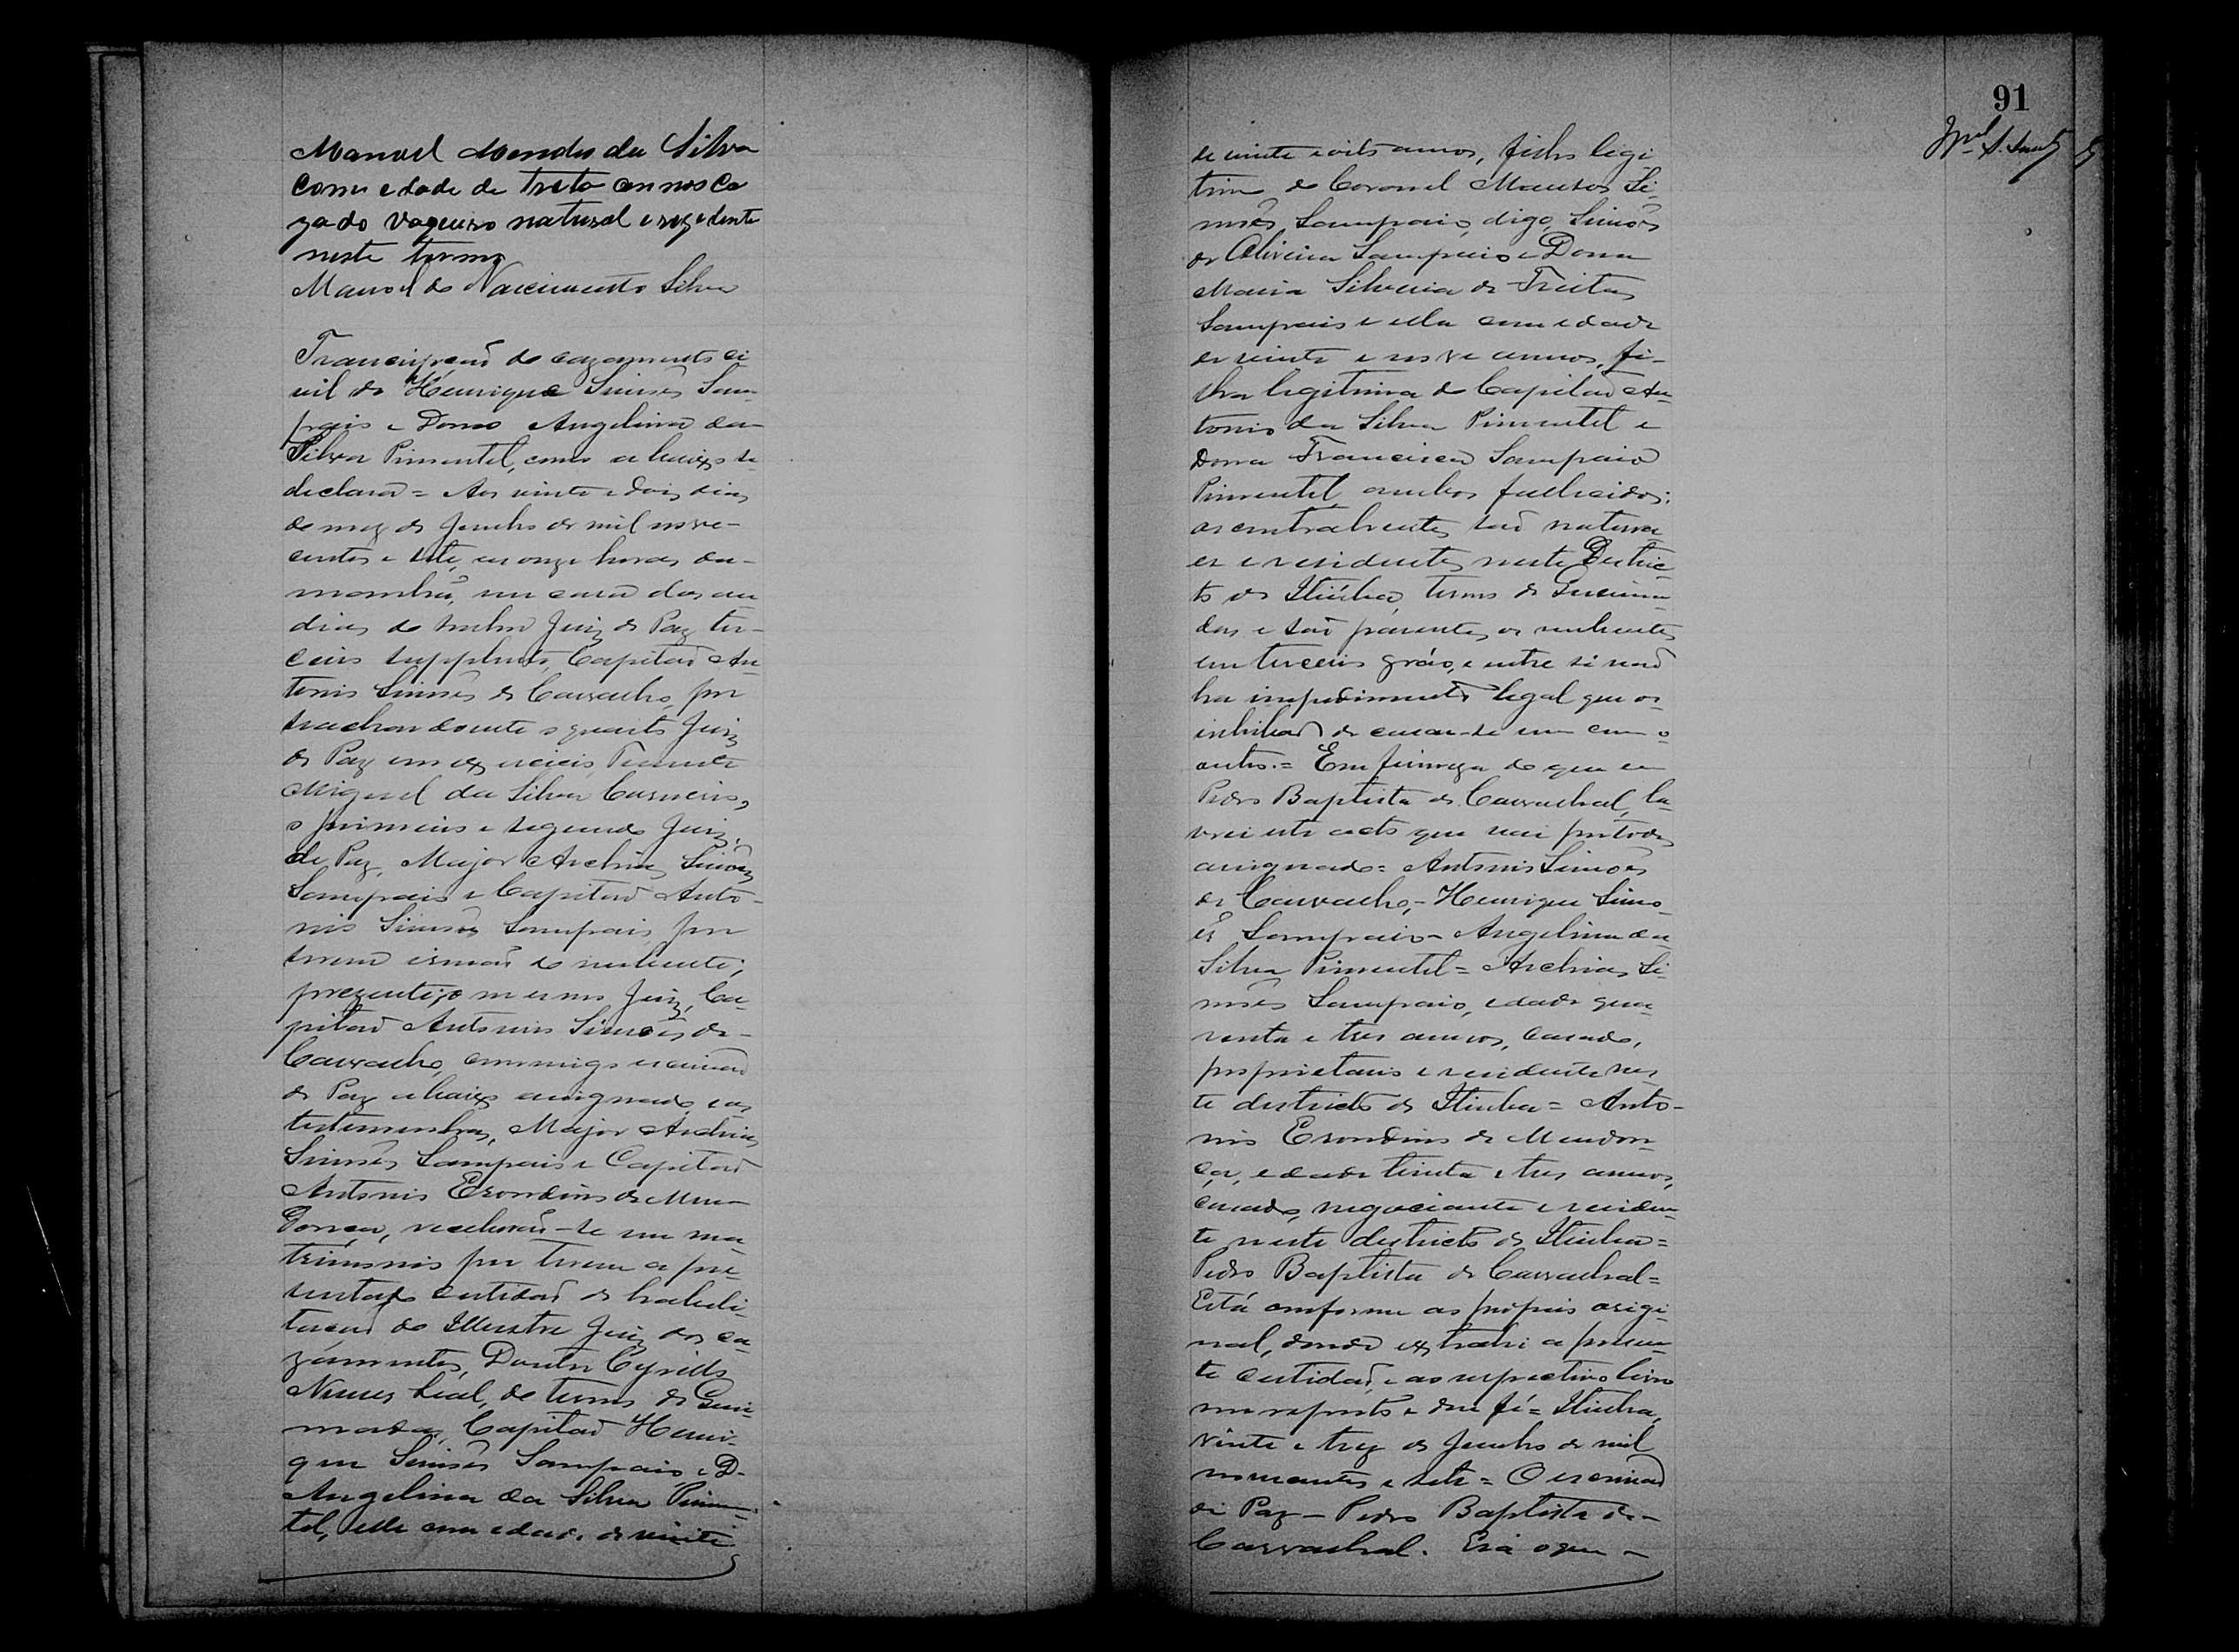 Manoel Mendes da Silva
com edade de treta annos ca
zado vaqueiro natural e rezedente
neste termo
Manoel do Nascimento Silva
Transcripção do cazamento ci
vil de Henrique Simões Sam
paio e Dona Angelina da
Silva Pimentel, como abaixo se
declara = Aos vinte e dois dias
do mez de Junho de mil nove-
centos e sete, as onze horas da
manhã, em casa das au
dias do senhor Juiz de Paz ter-
ceiro supplente, Capitão An
tonio Simões de Carvalho, por
se achar doente o quarto Juiz
de Paz em exercicio, Tenente
Miguel da Silva Carneiro,
o primeiro e segundo Juiz
de Paz, Major Archias Simões
Sampaio e Capitão Anto-
nio Simões Sampaio, por
serem irmãos do nubente;
prezente, o mesmo Juiz, Ca-
pitão Antonio Simões de
Carvalho, commigo escrivão
de Paz abaixo assignado e as
testemunhas, Major Archias
Simões Sampaio e Capitão
Antonio Esondino de Men
donça, receberão-se em ma
trimonio por terem apre-
sentado certidão de habili-
tação do Illustre Juiz dos ca-
zamentos, Doutor Cyrillo
Nunes Leal, do termo de Quei-
madas, Capitão Henri-
que Simões Sampaio e D.
Angelina da Silva Pimen-
tel, elle com edade de vinte
91
de vinte e oito annos, filho legi
timo do Coronel Manoel Si-
mões Sampaio, digo, Simões
de Oliveira Sampaio e Dona
Maria Silveria de Freitas
Sampaio e ella com edade
de vinte e nove annos, fi-
lha legitima do Capitão An
tonio da Silva Pimentel e
Dona Francisca Sampaio
Pimentel, ambos fallecidos;
os contrahentes são naturae
es e residentes neste Distric
to de Itiúba, termo de Queima
das e são parentes os nubentes
em terceiro gráo, e entre si não
ha impedimento legal que os
inhibão de casar-se um com o
outro. = Em firmeza do que eu
Pedro Baptista de Carvalhal, la
vrei este acto que vai por todos
assignado = Antonio Simões
de Carvalho, - Henrique Simo
es Sampaio - Angelina da
Silva Pimentel = Archias Si-
mões Sampaio, edade qua
renta e tres annos, casado,
proprietario e residente nes
te districto de Itiuba = Anto-
nio Esondino de Mendon
ça, edade trinta e tres annos,
casado, negociante e residen
te neste districto de Itiuba =
Pedro Baptista de Carvalhal =
Está conforme ao proprio origi
nal, donde extrahi a presen
te certidão, e ao respectivo livro
me reporto e dou fé = Itiuba,
vinte e trez de Junho de mil
novecentos e sete = O escrivão
de Paz - Pedro Baptista de -
Carvalhal. Era o que -